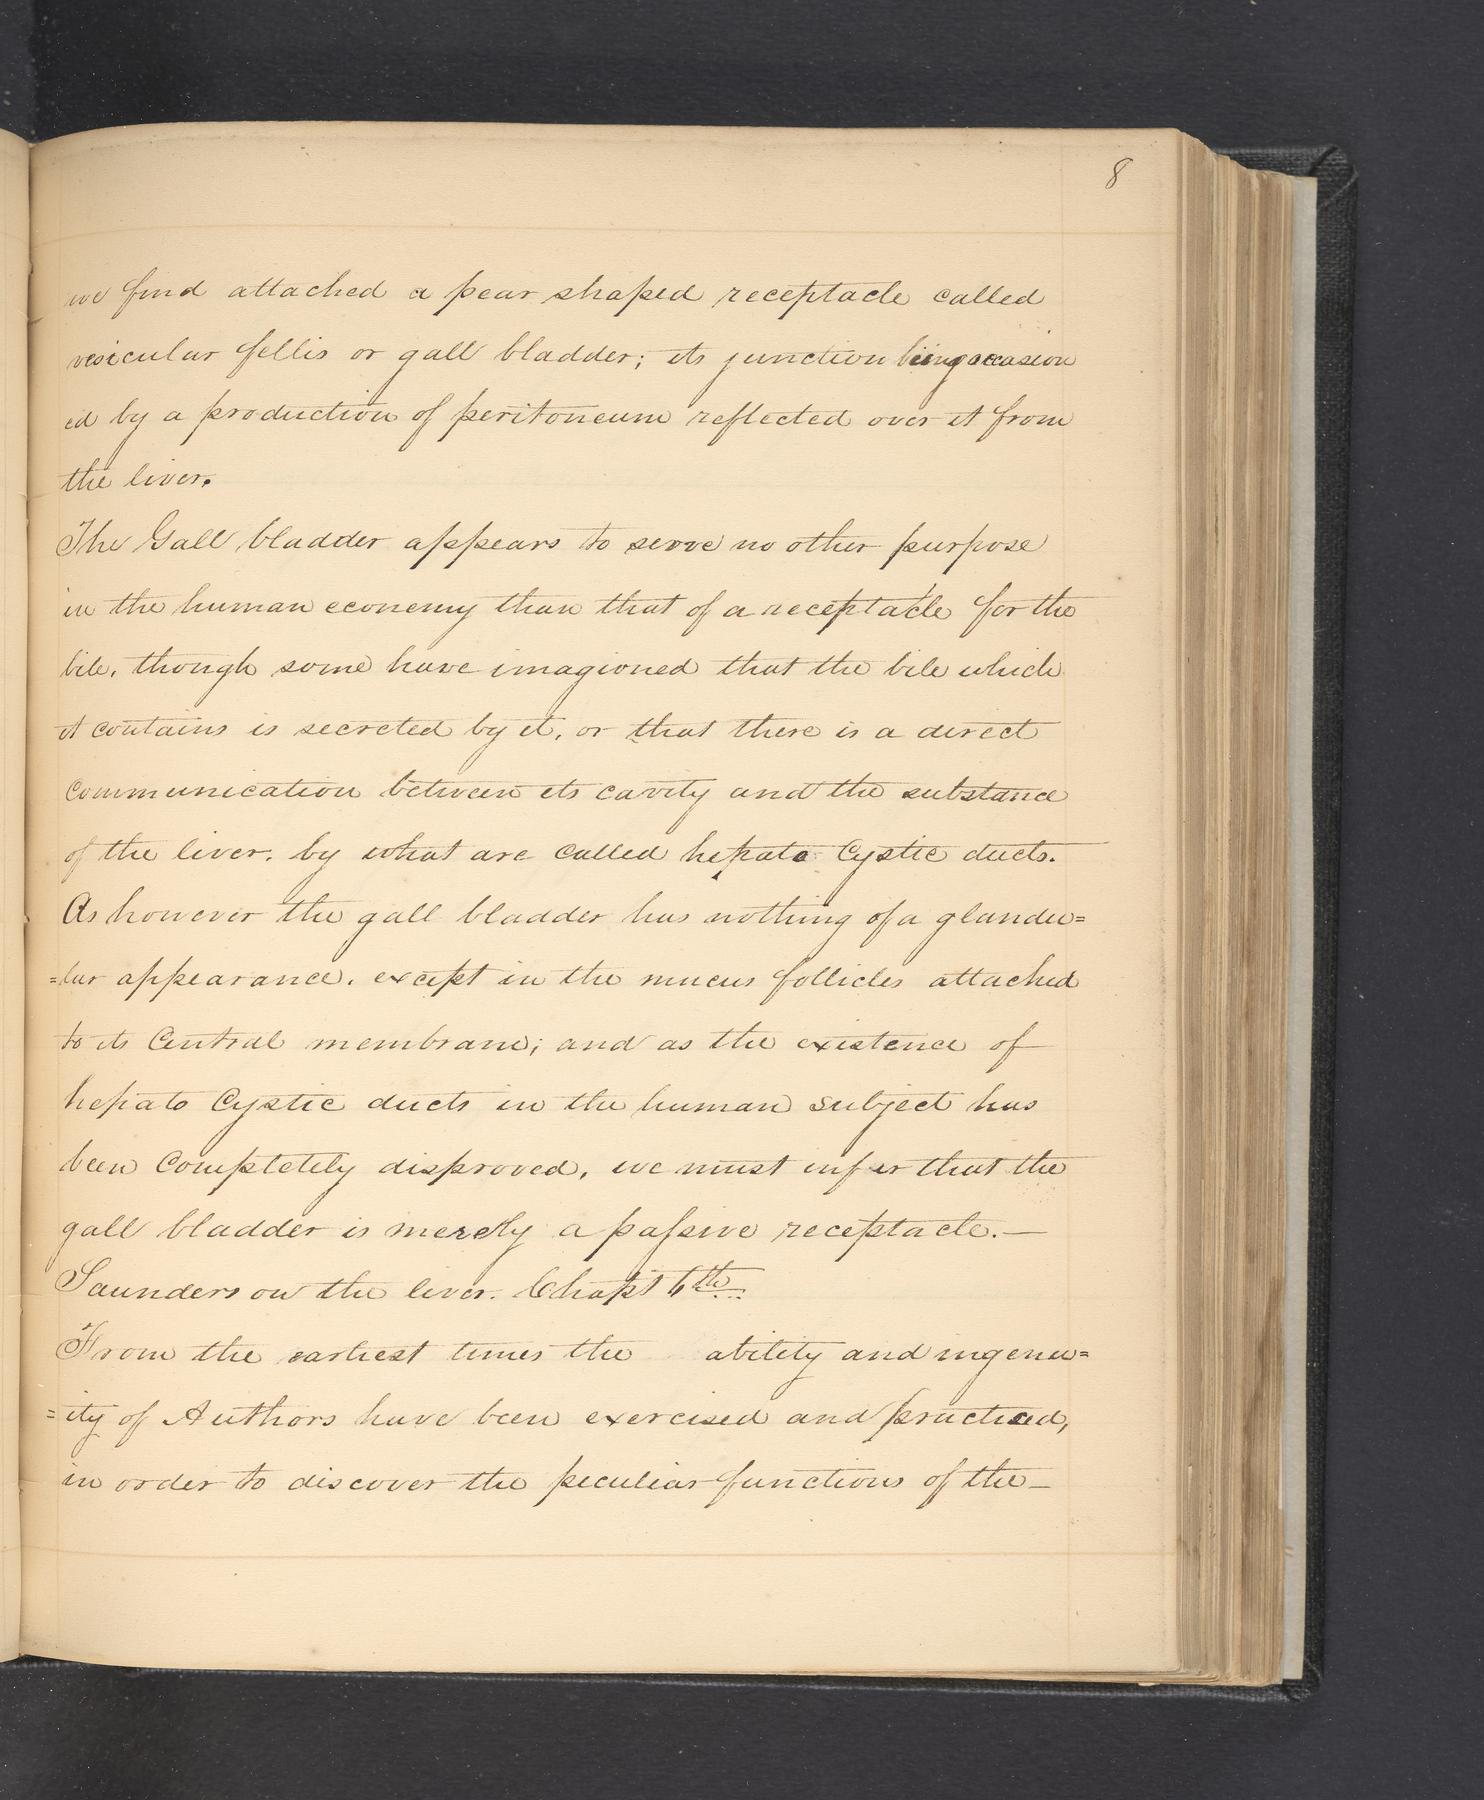 8
we find attached a pear shaped receptacle called
vesicular fellis or gall bladder; its junction being occasion
ed by a production of peritoneum reflected over it from
the liver.
The Gall bladder appears to serve no other purpose
in the human economy than that of a receptacle for the
bile, though some have imagioned that the bile which
it contains is secreted by it, or that there is a direct
communication between its cavity and the substance
of the liver, by what are called hepato Cystic ducts.
As however the gall bladder has nothing of a glandu=
=lar appearance, except in the mucus follicles attached
to its Central membrane; and as the existence of
hepato Cystic ducts in the human subject has
been Completely disproved, we must infer that the
gall bladder is merely a passive receptacle.—
Saunders on the liver. Chapt 6th
From the earliest times the ability and ingenu=
=ity of Authors have been exercised and practiced,
in order to discover the peculiar functions of the—